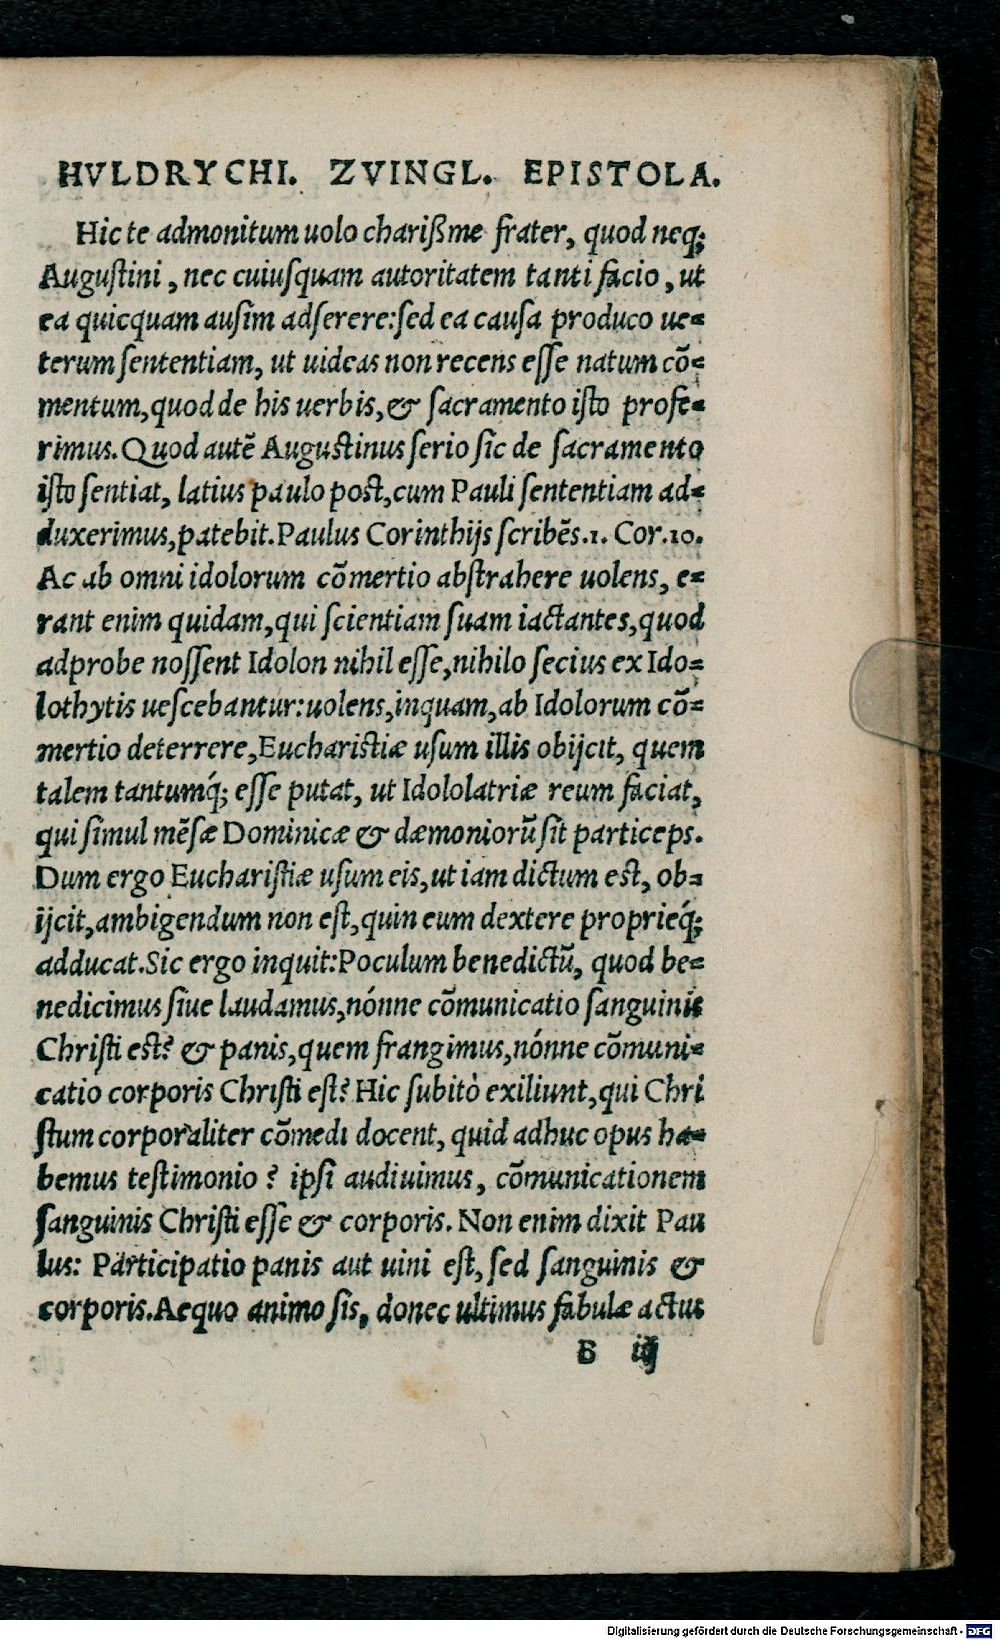 HVLDRYCHI. ZVINGL. EPISTOLA.
Hic te admonitum uolo charißme frater, quod neq;
Augustini, nec cuiuſquam autoritatem tanti facio, ut
ea quicquam auſim adſerere: ſed ea cauſa produco ue-
terum ſententiam, ut uideas non recens eſſe natum cõ-
mentum, quod de his uerbis, & ſacramento iſto profe-
rimus. Quod autẽ Auguſtinus ſerio ſic de ſacramento
iſto ſentiat, latius paulo poſt, cum Pauli ſententiam ad-
duxerimus, patebit. Paulus Corinthijs ſcribẽs .1. Cor. 10.
Ac ab omni idolorum cõmertio abſtrahere uolens, e-
rant enim quidam, qui ſcientiam ſuam iactantes, quod
adprobe noſſent Idolon nihil eſſe, nihilo ſecius ex Ido-
lothytis ueſcebantur: uolens, inquam, ab Idolorum cõ-
mertio deterrere, Euchariſtiæ uſum illis obijcit, quem
talem tantumq́; eſſe putat, ut Idololatriæ reum faciat,
qui ſimul mẽſæ Dominicæ & dæmoniorũ ſit particeps.
Dum ergo Euchariſtiæ uſum eis, ut iam dictum eſt, ob-
ijcit, ambigendum non eſt, quin eum dextere proprieq́;
adducat. Sic ergo inquit: Poculum benedictũ, quod be-
nedicimus ſiue laudamus, nónne cõmunicatio ſanguinis
Chriſti eſt? & panis, quem frangimus, nónne cõmuni-
catio corporis Chriſti eſt? Hic ſubitò exiliunt, qui Chri
ſtum corporaliter cõmedi docent, quid adhuc opus ha-
bemus teſtimonio? ipſi audiuimus, cõmunicationem
ſanguinis Chriſti eſſe & corporis. Non enim dixit Pau
lus: Participatio panis aut uini eſt, ſed ſanguinis &
corporis. Aequo animo ſis, donec ultimus fabulæ actus
B iij
Digitalisierung gefördert durch die Deutsche Forschungsgemeinschaft - DFG